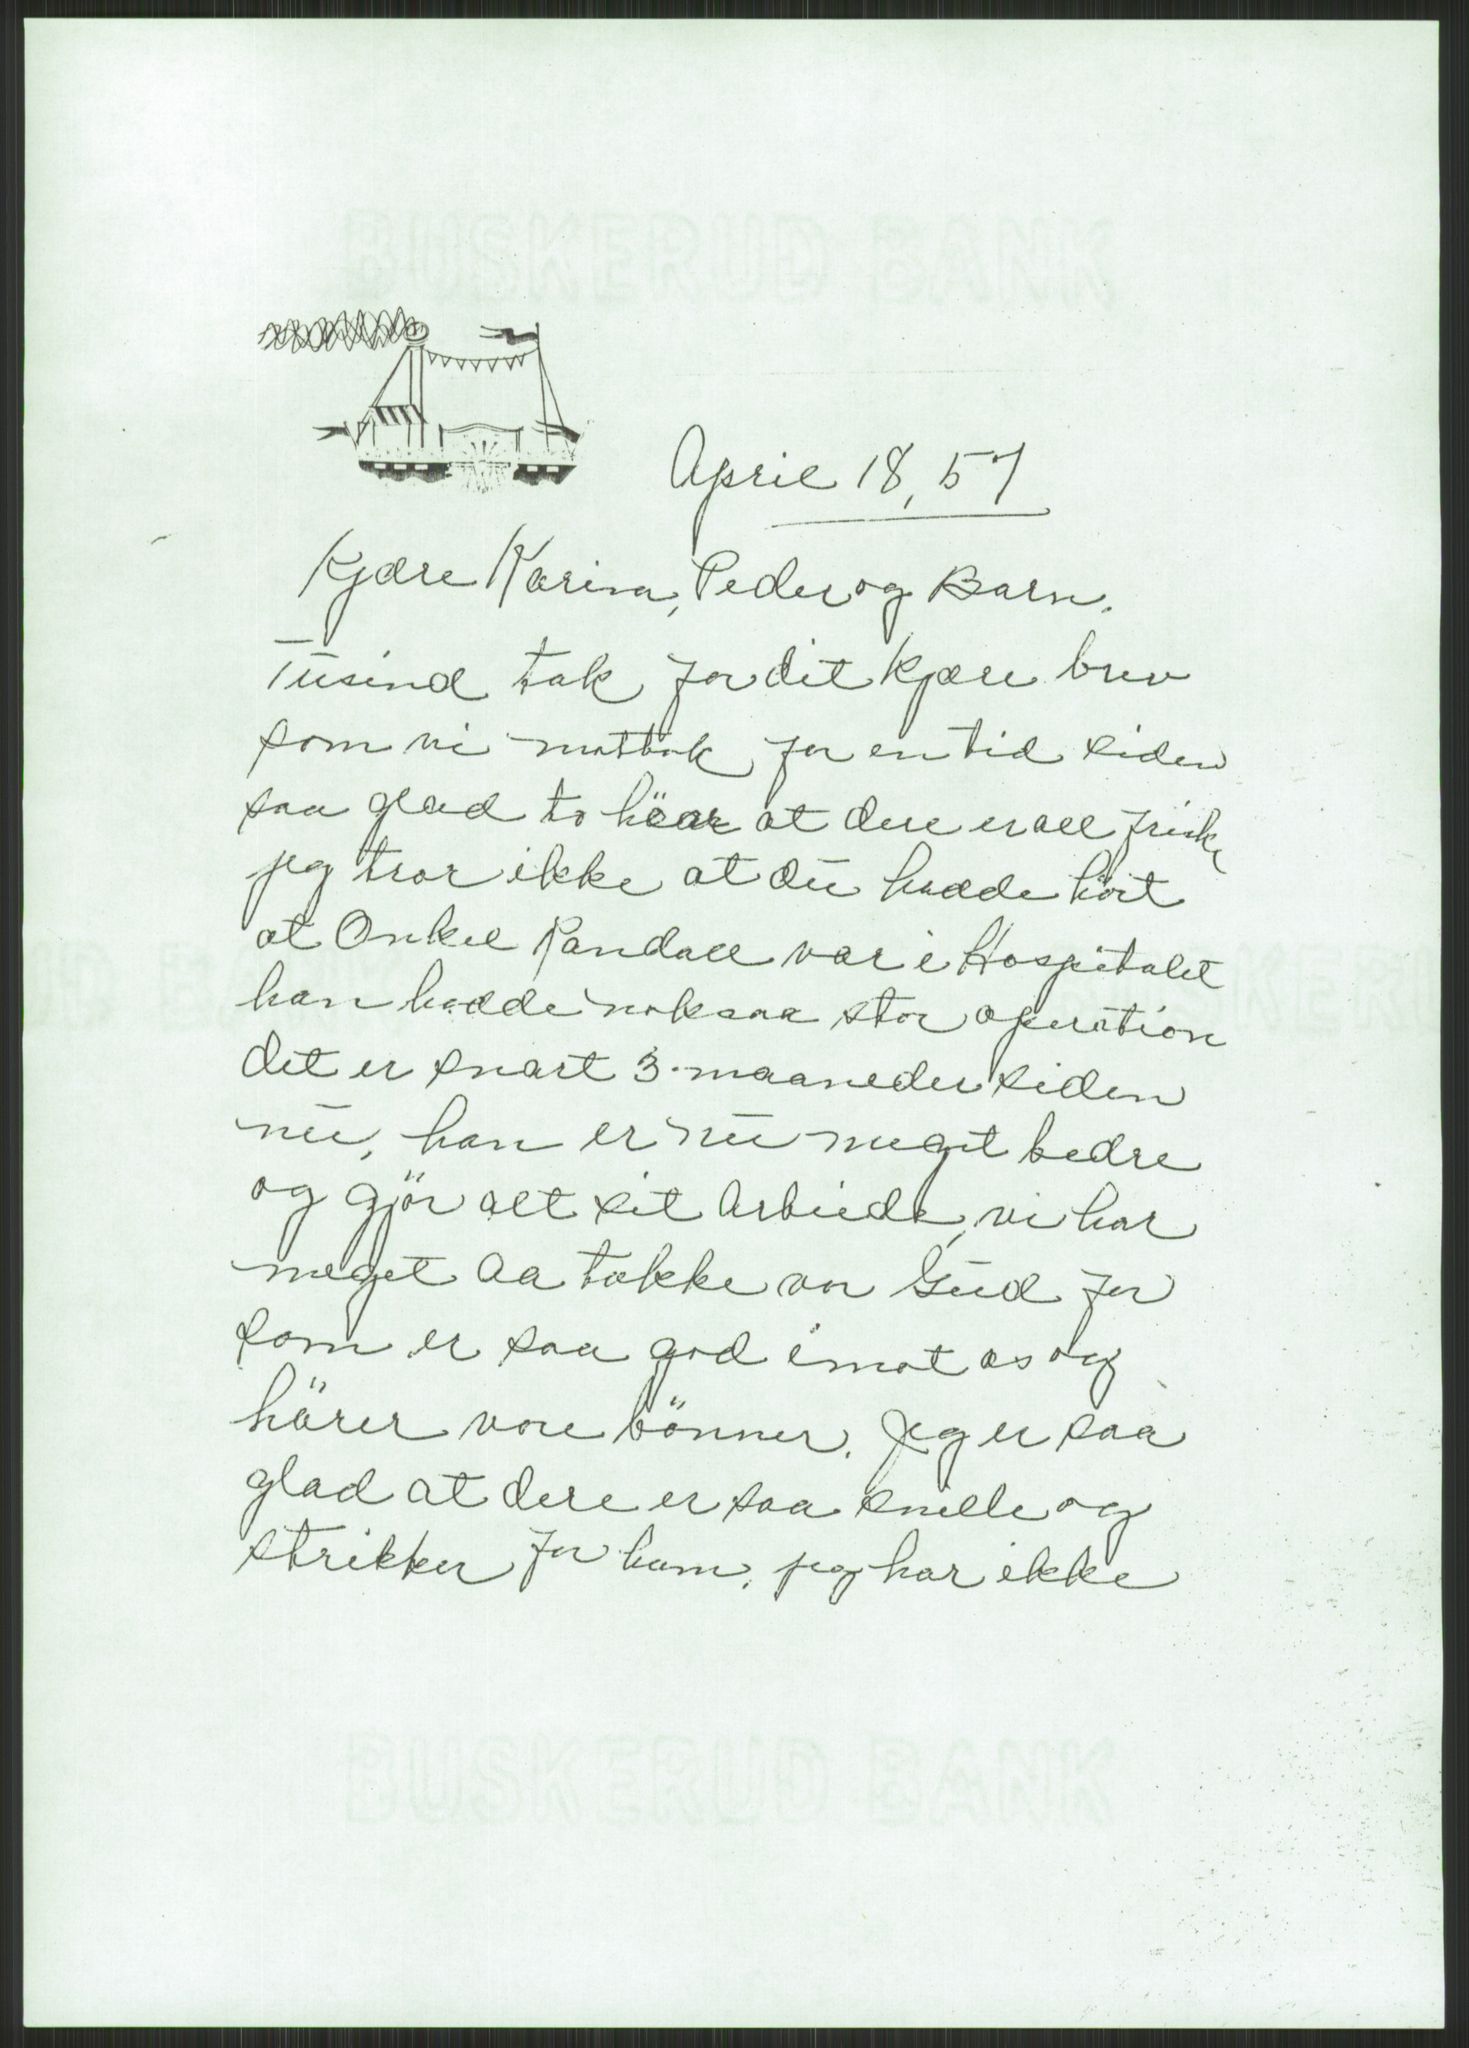 BUSKERUD BANK
April 18, 57
Kjære Karina, Peder og Barn.
Tusind tak for dit kjære brev
som vi mottok for en tid siden
saa glad to hear at dere er all friske
jeg tror ikke at du hadde hört
at Onkel Randall var i Hospitalet
han hadde noksaa stor operation
det er snart 3 maaneder siden
nu, han er nu meget bedre
og gjör alt sit Arbiede, vi har
meget Aa takke vor Gud for
som er saa god imot os og
hörer vore bönner. Jeg er saa
glad at dere er saa snille og
strikker for ham. jeg har ikke
BUSKERUD BANK